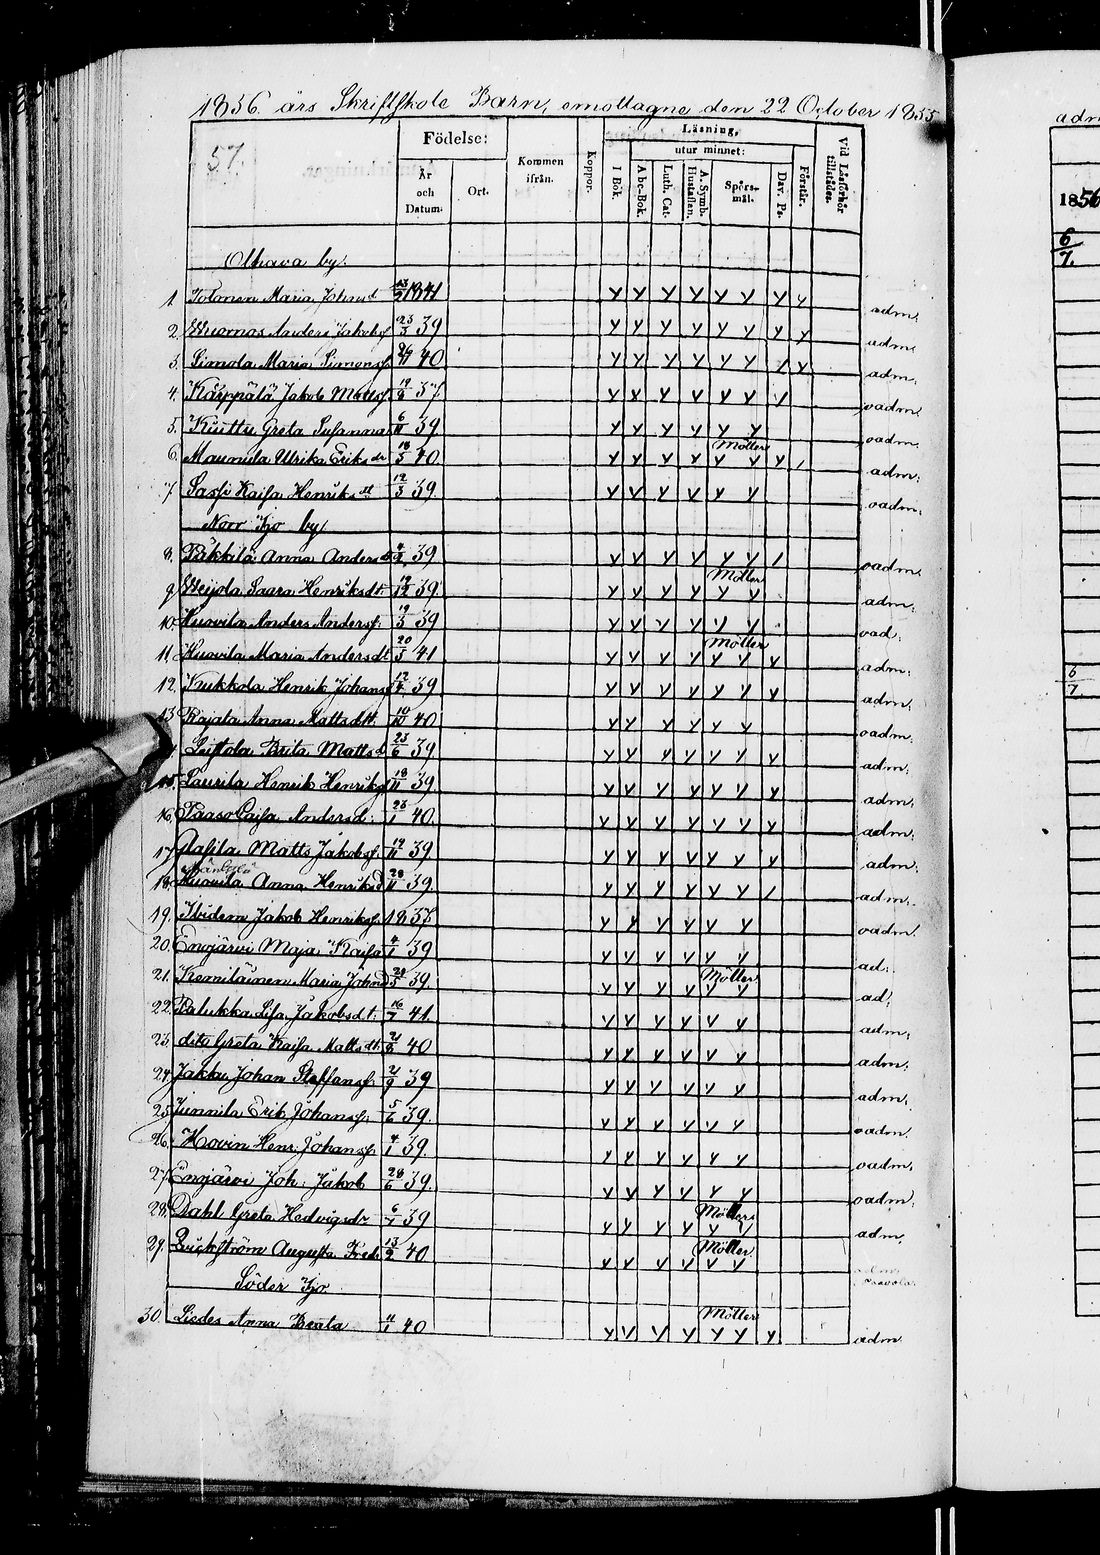 1856 års Skriftskole Barn, emottagne den 22 October 1855
57.
Födelse:
År och Datum.
Ort.
Kommen ifrån.
Koppor.
Läsning,
utur minnet:
I Bok.
Abc-Bok.
Luth. Cat.
A. Symb. Hustaflan.
Spörsmål.
Dav. Ps.
Förstår.
Vid Läsförhör tillstädes.
Olhava by:
1. Tolonen Maria Johnsd 13/2 1841 y y y y y y y y adm.
2. Anders Jakobsf 23/3 39 y y y y y y y y adm.
3. Simola Maria Simonsd 40 y y y y y y / y adm.
4. Karppälä Jakob Mattsf. 19/8 37 y y y y y y / oadm.
5. Kuuttu Greta Susanna 6/11 39 y y y y y y oadm.
6. Maunula Ulrika Eriksdr 18/5 40. Möller y y y y y y y / adm.
7. Sassi Kaisa Henriksdt 12/3 39. y y y y y y oadm.
Norr Ijo by
8. Päkkilä Anna Andersdt 39 y y y y y y / oadm.
9. Weijola Saara Henriksdt. 12/12 39. Möller y y y y y y adm.
10. Huovila Anders Andersf. 19/3 39 y y y y y y oad.
11. Huovila Maria Andersdt 20/3 41 Möller y y y y y y y adm.
12. Kukkola Henrik Johansf 12/4 39 y y y y y y y adm.
13 Rajala Anna Mattsdtt. 19/10 40 y y y y y y oadm.
Brita Mattsd. 23/6 39 y y y y y y y adm.
15. Laurila Henrik Henriksf 18/11 39. y y y y y y y adm.
16. Paaso Caisa Andersd. 23/1 40. y y y y y y y adm.
17. Matts Jakobsf. 12/11 39 y y y y y y y adm.
18. Huovila Anna Henriksd 28/11 39. y y y y y y / adm.
19. Ibidem Jakob Henriksf. 1837. y y y y y y oadm.
20. Enojärvi Maja Kaisa 4/1 39 y y y y y y ad.
21. Kemiläinen Maria Johnsd 39. Möller y y y y y y ad.
22. Palukka Lisa Jakobsdt. 16/7 41. y y y y y y adm.
23. dito Greta Kaisa Mattsdt. 21/8 40 y y y y y y adm.
24. Jakku Johan Staffansf. 21/9 39 y y y y y y adm.
25. Junnila Erik Johansf. 5/6 39. y y y y y y oadm.
26. Hovin Henr. Johansf. 4/1 39. y y y y y y oadm.
27. Enojärvi Joh. Jakob 28/6 39. y y y y y y oadm.
28. Dahl Greta Hedvigsdr 6/1 39 Möller y y y y y y adm.
29. Augusta Fredr. 13/2 40 Möller y y y y y y
Söder Ijo
30. Liedes Anna Beata 11/1 40 Möller y y y y y y y adm
adm
1856
6/7.
6/7